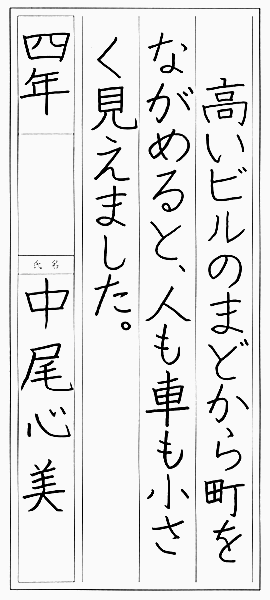 高いビルのまどから町を
ながめると、人も車も小さ
く見えました。
四年
氏名
中尾心美